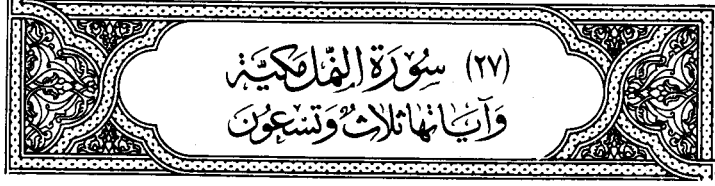 (٢٧) سُورَةُ النَّمْلِ مَكِّيَّةٌ
وَآيَاتُهَا ثَلَاثٌ وَتِسْعُونَ